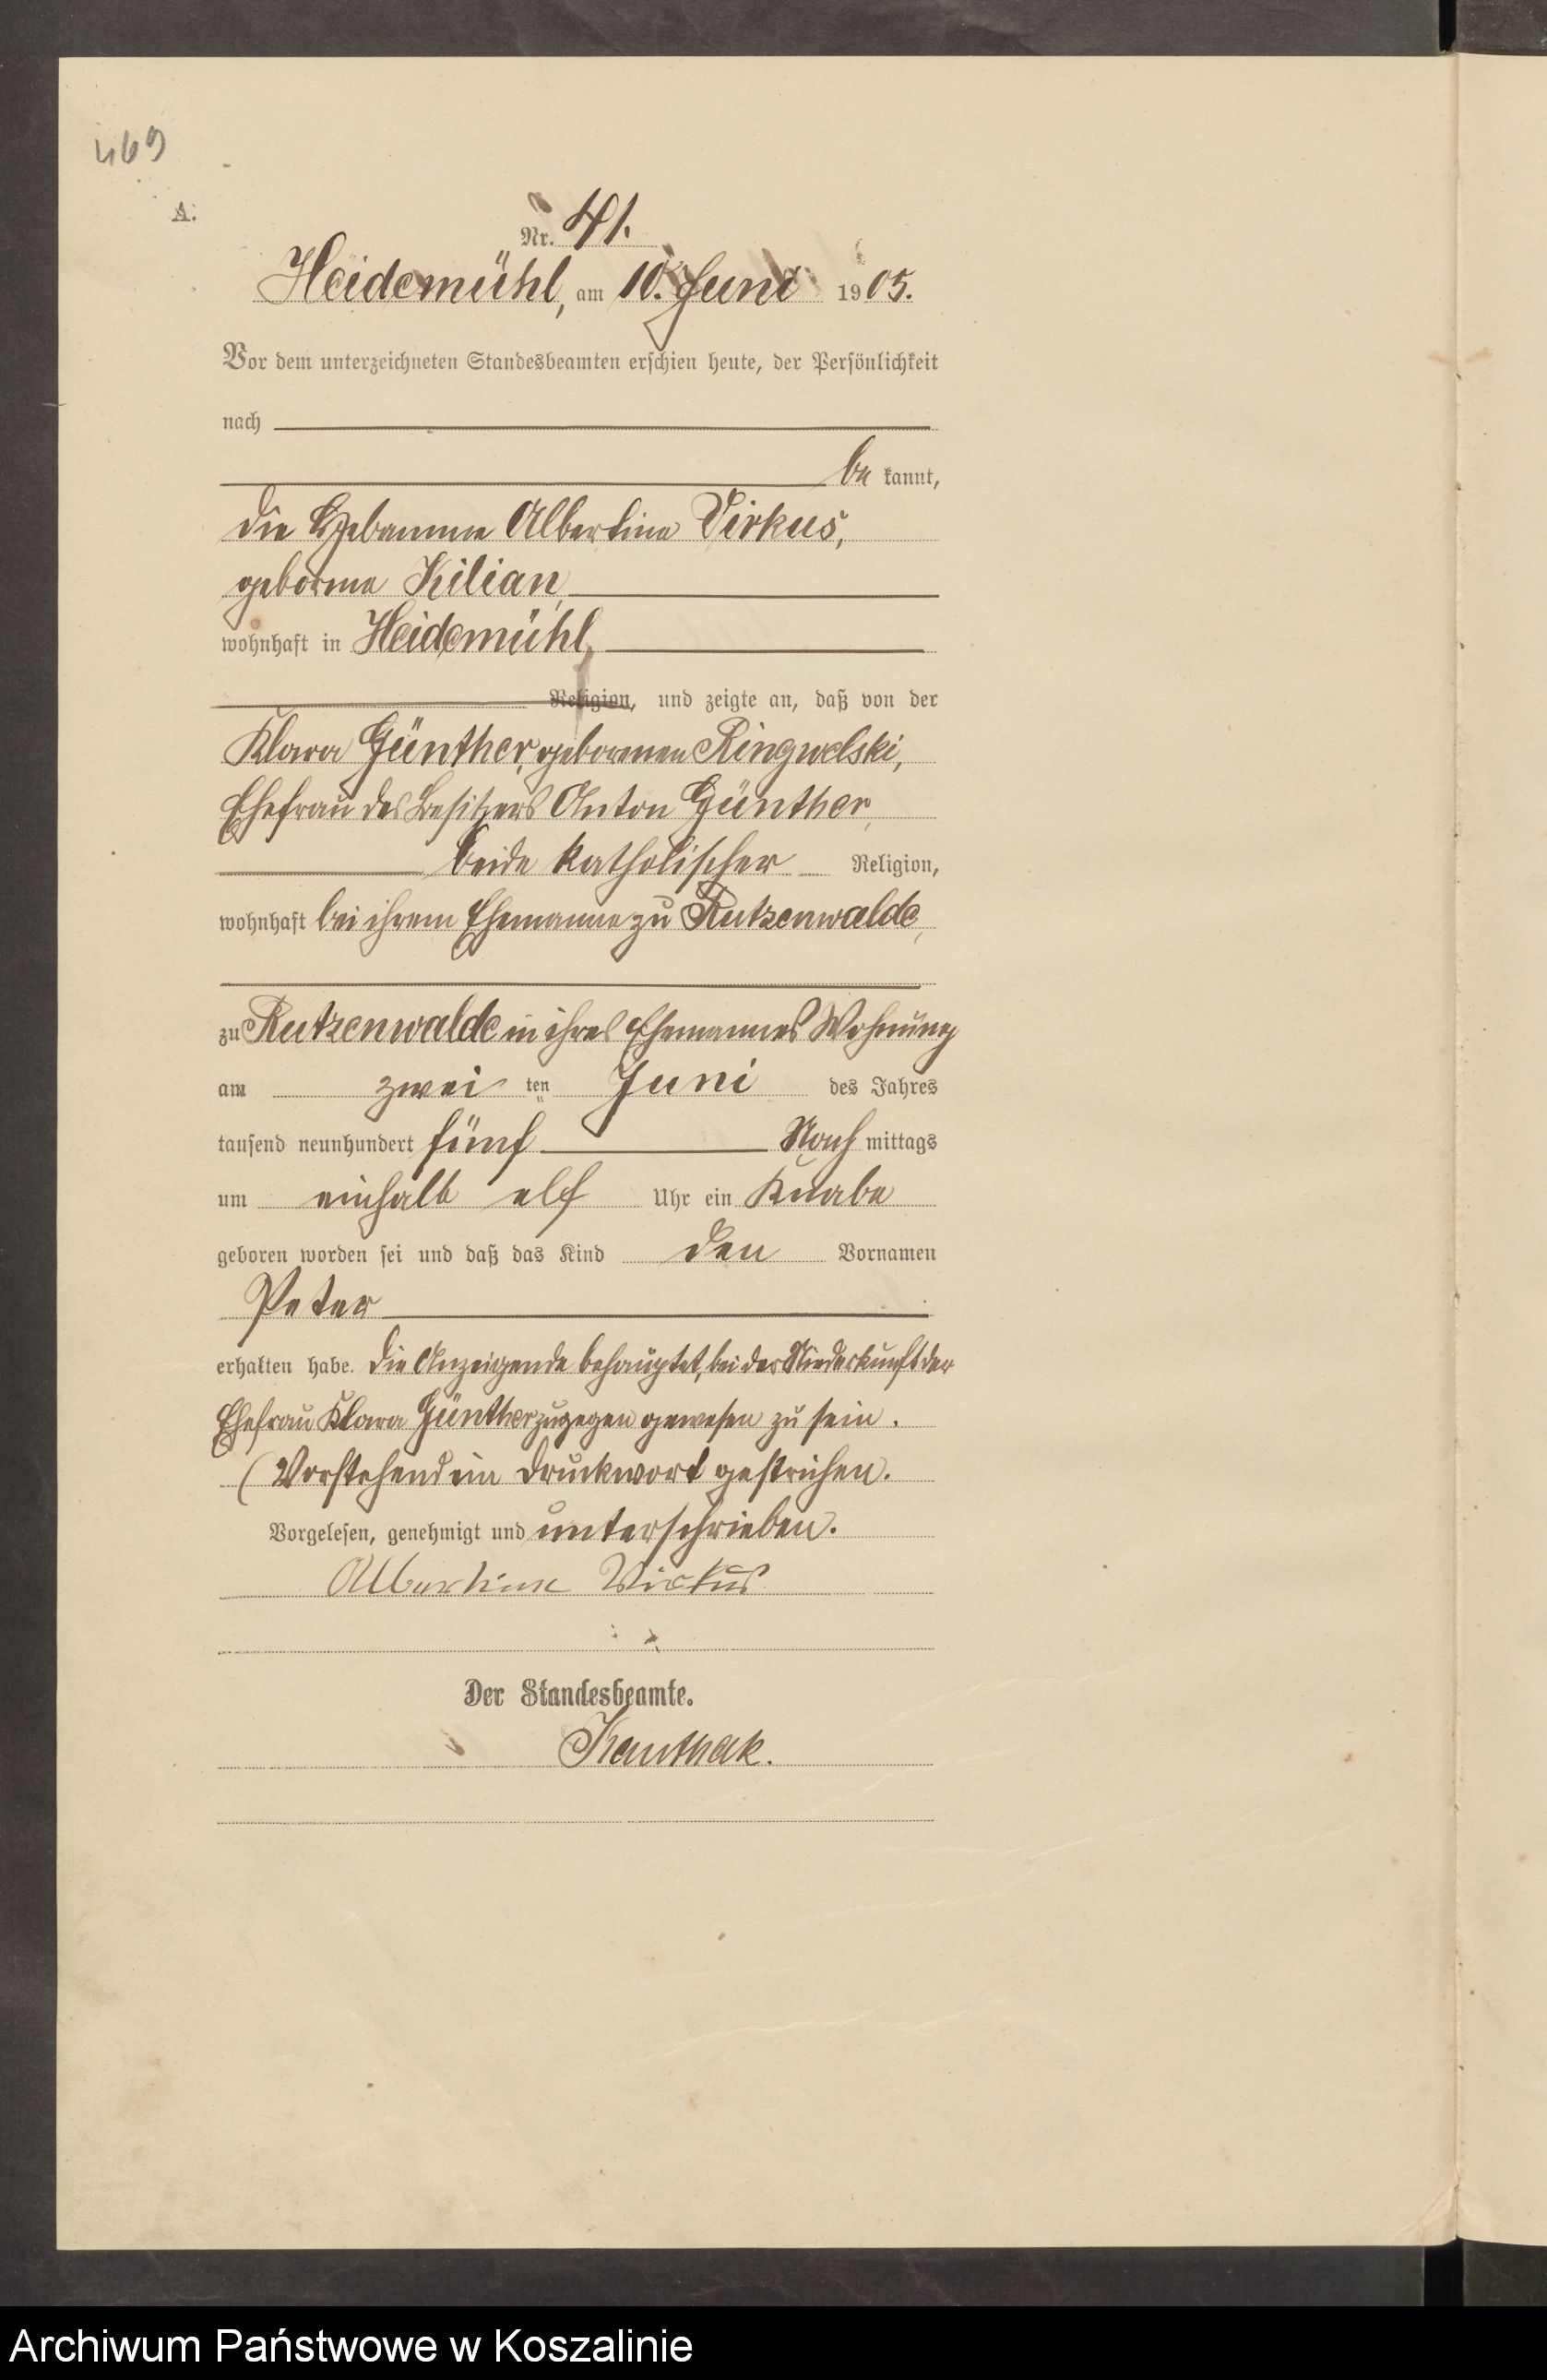 469
A.
Nr. 41.
Heidemühl, am 10. Juni 1905.
Vor dem unterzeichneten Standesbeamten erschien heute, der Persönlichkeit
nach
be kannt,
die Hebamme Albertine Virkus,
geborene Kilian,
wohnhaft in Heidemühl,
Religion, und zeigte an, daß von der
Klara Günther, geborenen Ringwelski,
Ehefrau des Besitzers Anton Günther,
beide katholischer Religion,
wohnhaft bei ihrem Ehemanne zu Rutzenwalde,
zu Rutzenwalde in ihres Ehemannes Wohnung
am zwei ten Juni des Jahres
tausend neunhundert fünf Nach mittags
um einhalb elf Uhr ein Knabe
geboren worden sei und daß das Kind den Vornamen
Peter
erhalten habe. Die Anzeigende behauptet, bei der Niederkunft der
Ehefrau Klara Günther zugegen gewesen zu sein.
(Vorstehend ein Druckwort gestrichen.
Vorgelesen, genehmigt und unterschrieben.
Albertine Wirkus
Der Standesbeamte.
Kauthak.
Archiwum Państwowe w Koszalinie